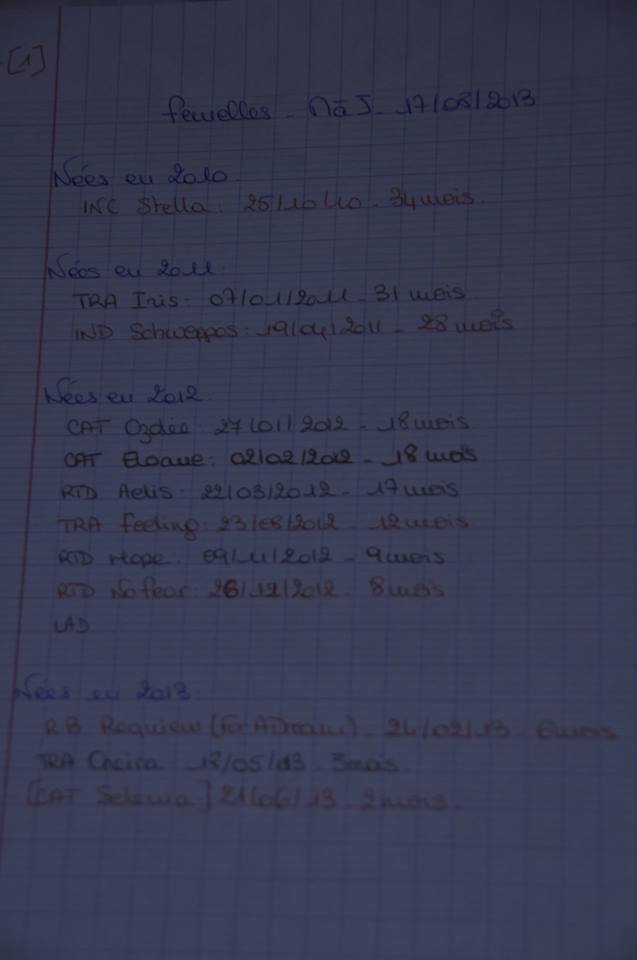 [1]
femelles - MàJ - 17/08/2013
Nées en 2010
INC Stella : 25/10/10 - 34 mois
Nées en 2011
TRA Iris : 07/01/2011 - 31 mois
IND Schweppes : 19/04/2011 - 28 mois
Nées en 2012
CAT Ozdée : 27/01/2012 - 18 mois
CAT Eloane : 02/02/2012 - 18 mois
RTD Aelis : 22/03/2012 - 17 mois
TRA feeling : 23/08/2012 12 mois
RTD Hope 09/11/2012 - 9 mois
RTD No fear : 26/12/2012 8 mois
LAD
Nées en 2013
RB Requiem (For A Dream) 24/02/13 6 mois
TRA Cheira 18/05/13 3 mois
[CAT Selewa] 21/06/13 - 2 mois